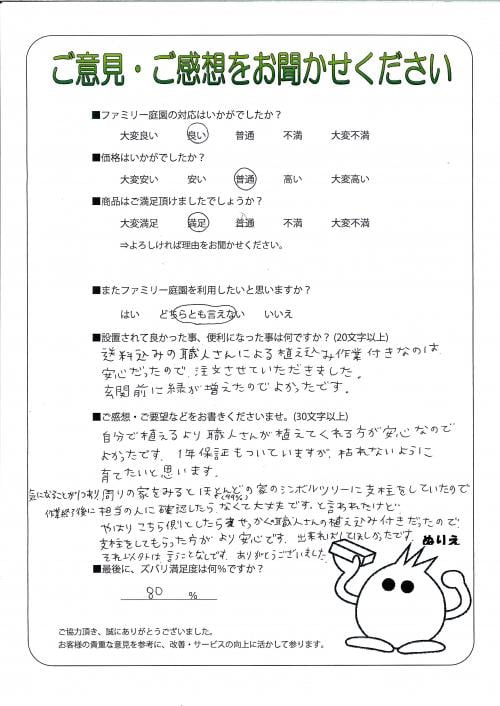 ご意見・ご感想をお聞かせください
■ファミリー庭園の対応はいかがでしたか？
大変良い 良い 普通 不満 大変不満
■価格はいかがでしたか？
大変安い 安い 普通 高い 大変高い
■商品はご満足頂けましたでしょうか？
大変満足 満足 普通 不満 大変不満
⇒よろしければ理由をお聞かせください。
■またファミリー庭園を利用したいと思いますか？
はい どちらとも言えない いいえ
■設置されて良かった事、便利になった事は何ですか？(20文字以上)
送料込みの職人さんによる植え込み作業付きなのは
安心だったので、注文させていただきました。
玄関前に緑が増えたのでよかったです。
■ご感想・ご要望などをお書きくださいませ。(30文字以上)
自分で植えるより職人さんが植えてくれる方が安心なので
よかったです。1年保証もついていますが、枯れないように
育てたいと思います。
気になることが1つあり周りの家をみるとほとんど(99%)の家のシンボルツリーに支柱をしていたので
作業終了後に担当の人に確認したらなくて大丈夫です。と言われたけど
やはりこちら側としたらせっかく職人さんの植え込み付きだったので、
支柱をしてもらった方がより安心です。出来ればしてほしかったです。
それ以外は言うことなしです。ありがとうございました。
ぬりえ
■最後に、ズバリ満足度は何％ですか？
80 ％
ご協力頂き、誠にありがとうございました。
お客様の貴重な意見を参考に、改善・サービスの向上に活かして参ります。